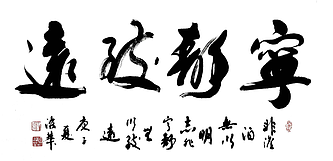 寧靜致遠
非淡
泊
無以
明
志非
寧靜
無
以致
遠
庚子
夏